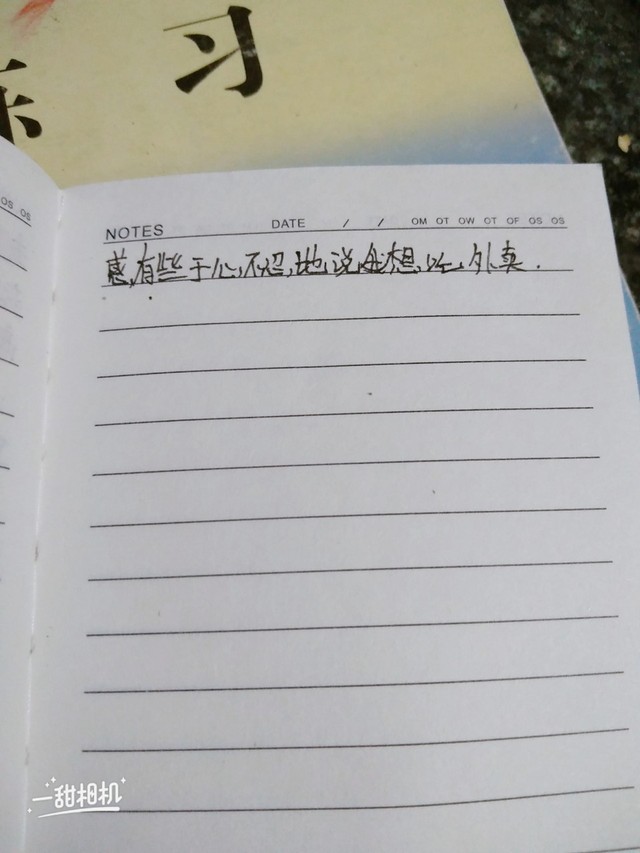 练 习
OS OS
NOTES DATE / / OM OT OW OT OF OS OS
意,有些于心,不忍,她,说,想,吃,外卖.
一甜相机